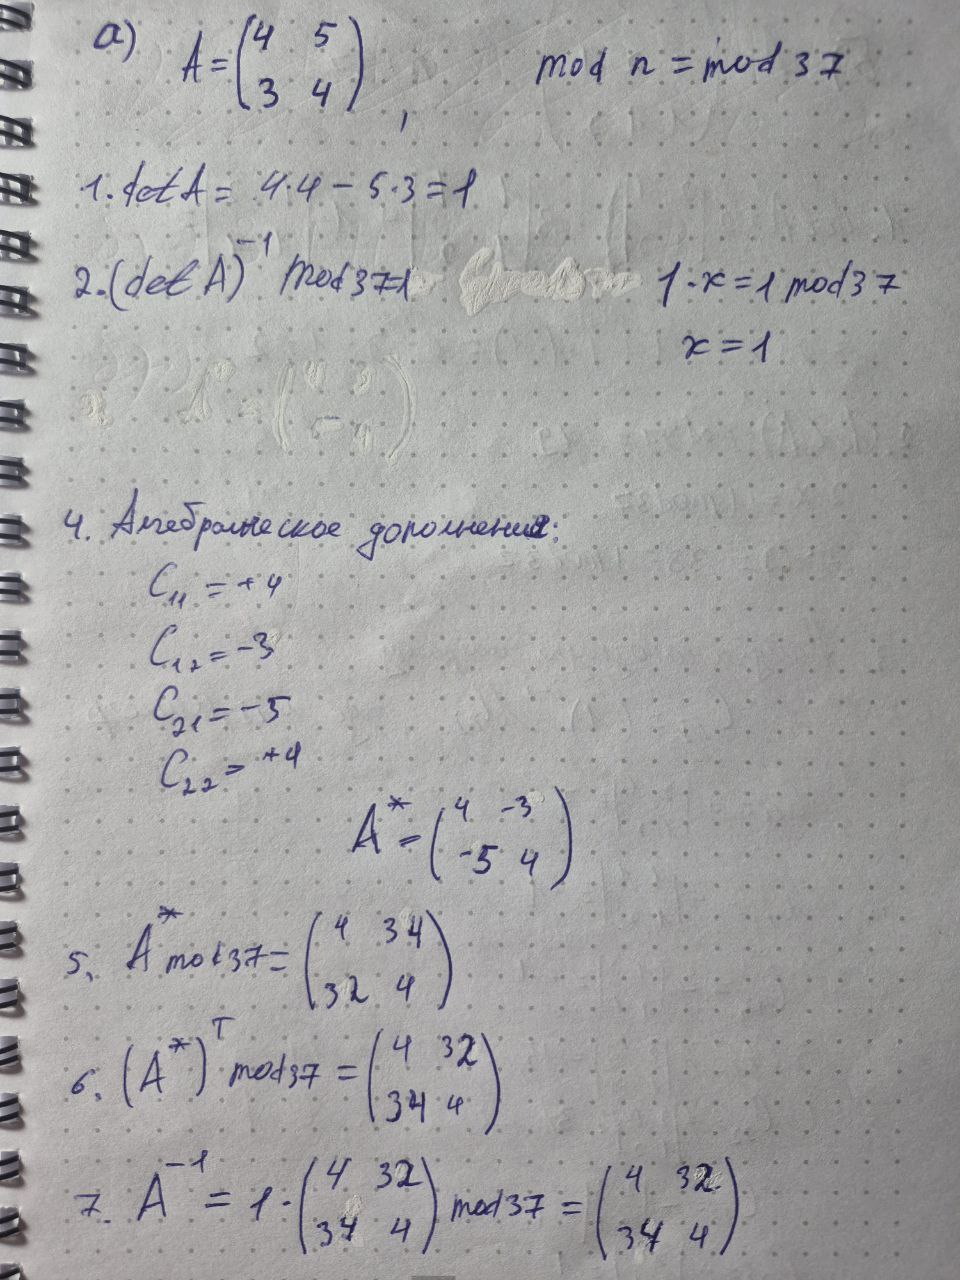 а) A = (4 5
3 4), mod n = mod 37
1. det A = 4·4 − 5·3 = 1
2. (det A)⁻¹ mod 37=1 1·x = 1 mod 37
x = 1
4. Алгебраическое дополнения:
C₁₁ = +4
C₁₂ = -3
C₂₁ = -5
C₂₂ = +4
A* = (4 -3
-5 4)
5. A* mod 37 = (4 34
32 4)
6. (A*)ᵀ mod 37 = (4 32
34 4)
7. A⁻¹ = 1· (4 32
34 4) mod 37 = (4 32
34 4)